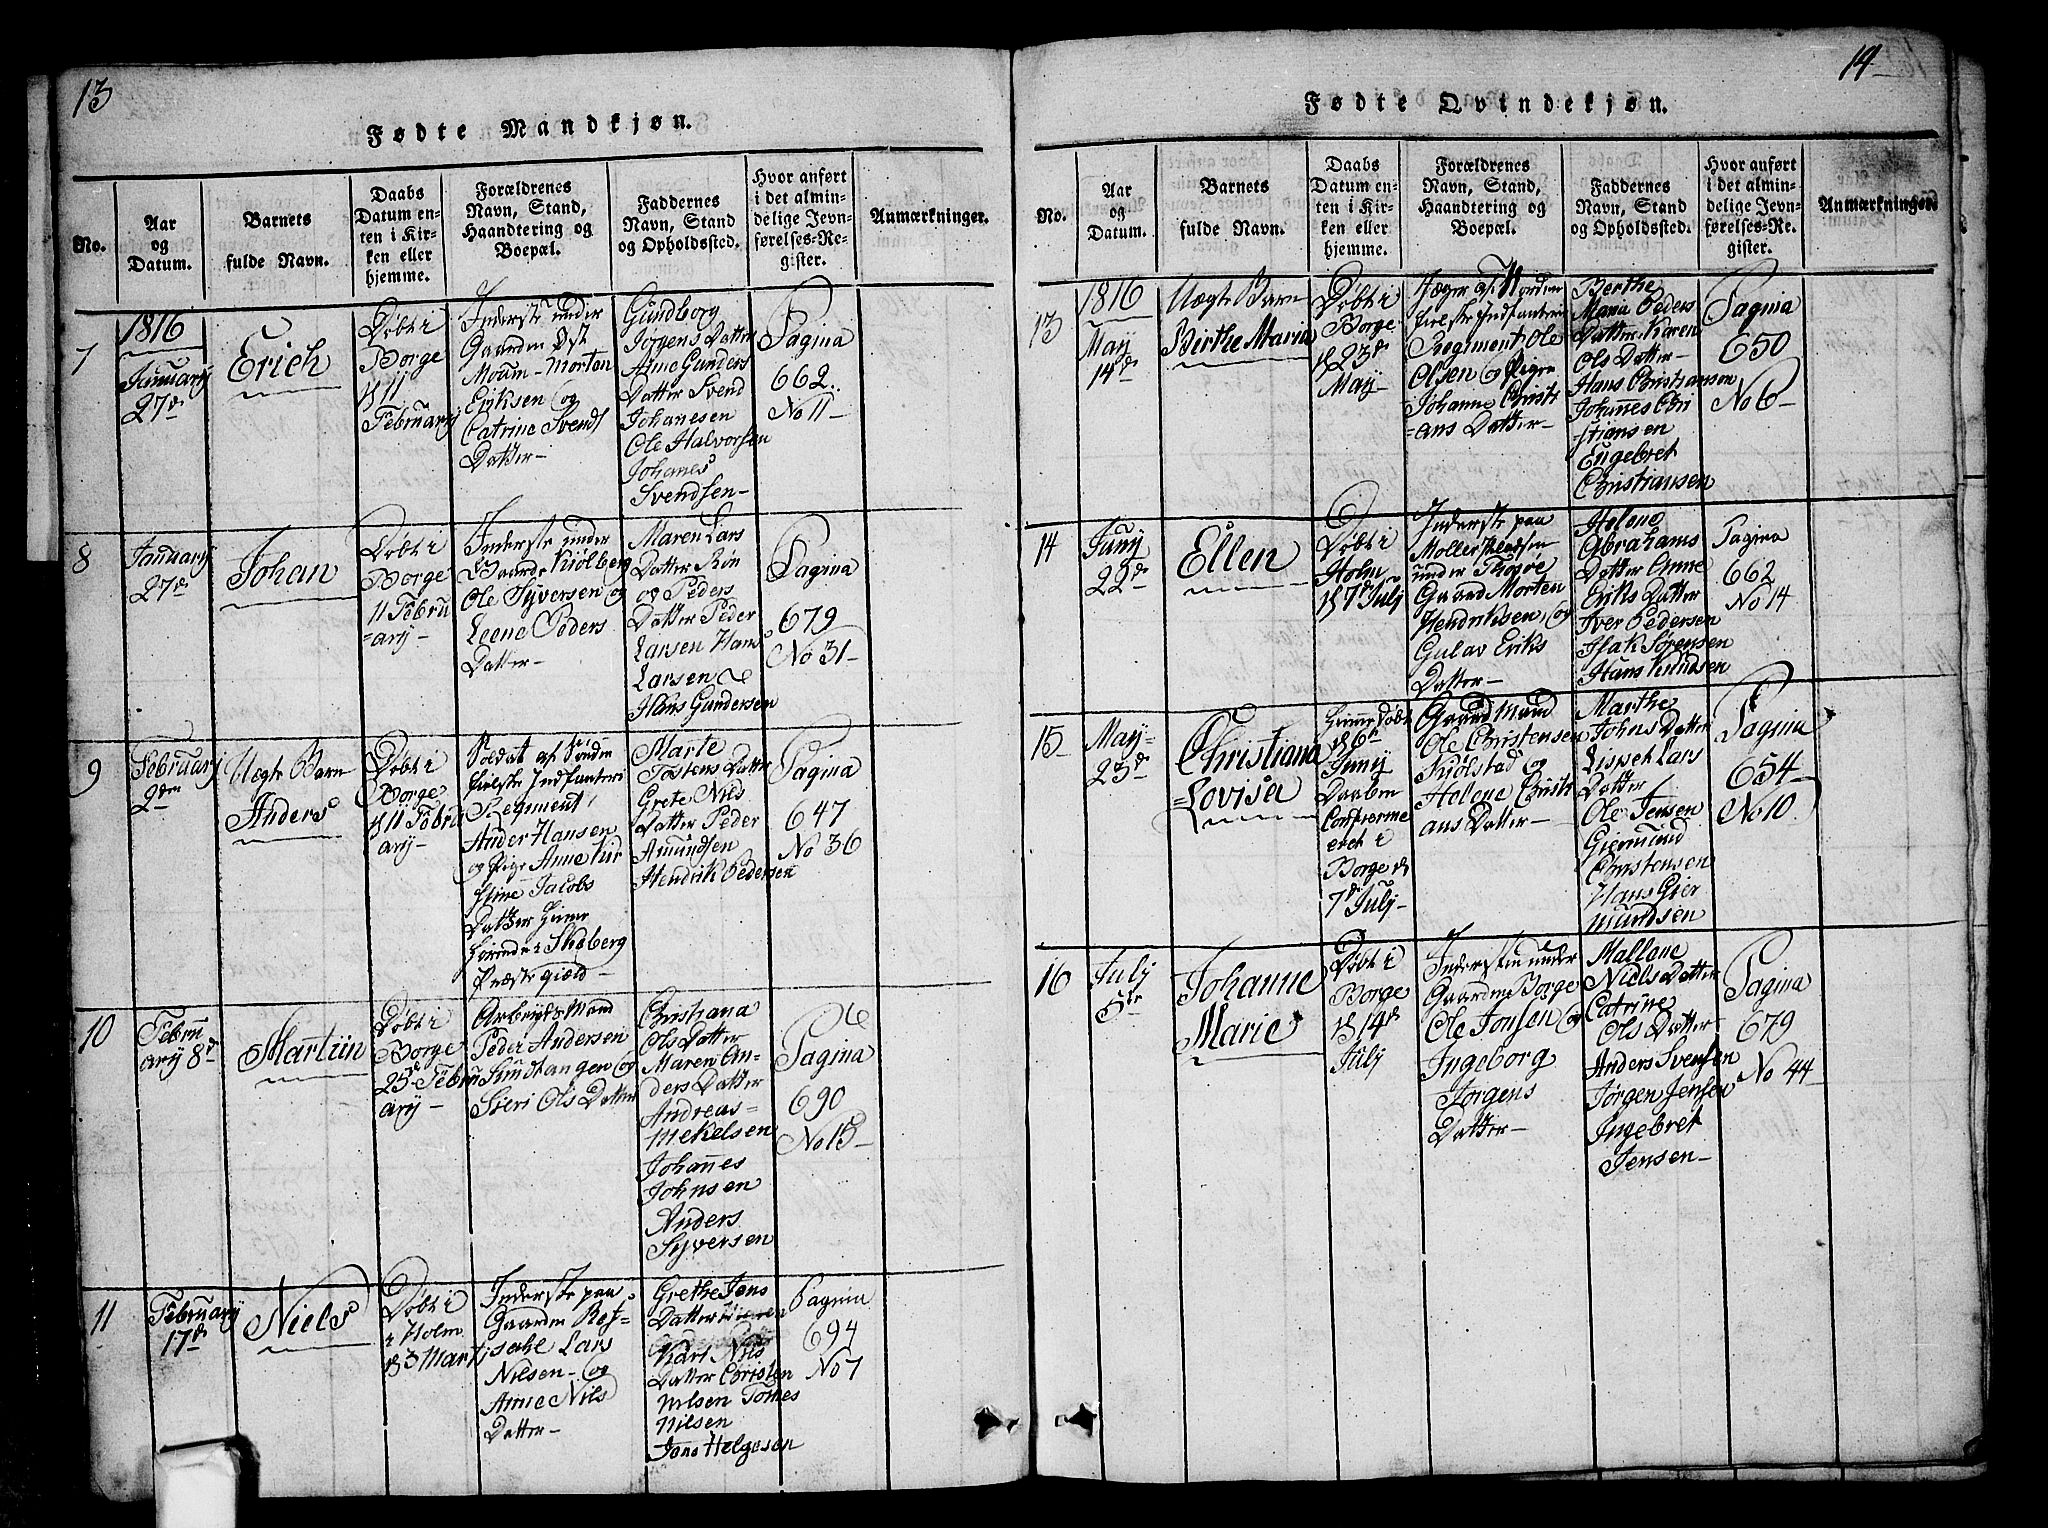 13
Fødte Mandkjøn.
No.
Aar
og
Datum.
Barnets
fulde Navn.
Daabs
Datum en-
ten i Kir-
ken eller
hjemme.
Forældrenes
Navn, Stand,
Haandtering og
Boepæl.
Faddernes
Navn, Stand
og Opholdssted.
Hvor anført
i det almin-
delige Jevn-
førelses-Re-
gister.
Anmærkninger.
7
1816
Januarÿ
27de
Erich
Døbt i
Borge
d 11
Februarÿ
Inderste under
Gaarden Øst
Moum - Morten
Eriksen og
Catrine Svends
Datter -
Gundborg
Jørgens Datter
Anne Gunders
Datter Svend
Johanesen
Ole Halvorsen
Johanes
Svendsen -
Pagina
662.
No 11 -
8
Januarÿ
27de
Johan
Døbt i
Borge
11 Febru
=arÿ -
Inderste under
Gaarde Kiölberg
Ole Syversen og
Leene Peders
Datter -
Maren Lars
Datter
Peders
Datter Peder
Larsen Hans
Larsen
Hans Gundersen
Pagina
679
No 31 -
9
Februarÿ
2den
Uægte Barn
Anders
Døbt i
Borge
d 11 Febru
arÿ -
Soldat af Sönden
fielske Infanteri
Regiment
Ander Hansen
og Pige Anne Kir
stine Jacobs
Datter
Skiberg
Præstegiæld -
Marte
Torstens Datter
Grete Nils
Datter Peder
Amundsen
Hendrik Pedersen
Pagina
647
No 36
10
Febru
arÿ 8de
Martin
Døbt i
Borge
25 Febru
arÿ -
Arbeyds Mand
Peder Andersen
Sundtangen og
Sieri Ols Datter
Christiana
Ols Datter
Maren An-
ders Datter
Andreas -
Mekelsen
Johannes
Johnsen
Anders
Syversen
Pagina
690
No 15 -
11
Februarÿ
17de
Niels
Døbt i
i Holm
d 3 Martj
Inderste paa
Gaarden Røs-
sake Lars
Nilsen - og
Anne Nils
Datter -
Grethe Jens
Datter
Kari Nils
Datter Christen
Nilsen Tomes
Nilsen
Jens Helgesen
Pagina
694
No 7
14
Fødte Qvindekjøn.
No.
Aar
og
Datum.
Barnets
fulde Navn.
Daabs
Datum en-
ten i Kir-
ken eller
hjemme.
Forældrenes
Navn, Stand,
Haandtering og
Boepæl.
Faddernes
Navn, Stand
og Opholdssted.
Hvor anført
i det almin-
delige Jevn-
førelses-Re-
gister.
Anmærkninger.
13
1816
Maÿ
14de
Uægte Barn
Birthe Maria
Døbt i
Borge
d 23de
Maÿ
Jæger af Norden
fielske Infanteri
Regiment Ole
Olsen og Pigen
Johanne Christi
=ans Datter -
Berthe
Maria Peders
Datter Karen
Ols Datter -
Hans Christiansen
Johannes Chri
stiansen
Engebret
Christiansen
Pagina
650
No 6 -
14
Junÿ
22de
Ellen
Døbt i
Holm
d 7de Julj
Inderste paa
under
Gaard Morten
Hendriksen, og
Gulav Eriks
Datter -
Helene
Abrahams
Datter Anne
Eriks Datter
Iver Pedersen
Isak Sørensen
Hans Knudsen
Pagina
662
No 14
15
Maÿ -
23de
Christiana
=Lovisa
Hiemme Døbt
d 6te
Junÿ
Daaben
Confierme
eret i
Borge d
7de Julj -
Gaard Mand
Ole Christensen
Kjølstad og
Helene Christi
ans Datter -
Marthe
Johns Datter
Lispet Lars
Datter
Ole Jensen
Giermund
Christensen
Hans Gier
mundsen
Pagina
654 -
No 10
16
Julj
5te
Johanne
Marie
Døbt i
Borge
d 14de
Julj
Inderste under
Gaarden Borge
Ole Jonsen og
Ingeborg
Jorgens
Datter -
Mallene
Niels Datter
Catrine
Ols Datter
Anders Svensen
Jørgen Jensen
Ingebret
Jensen -
Pagina
679
No 44